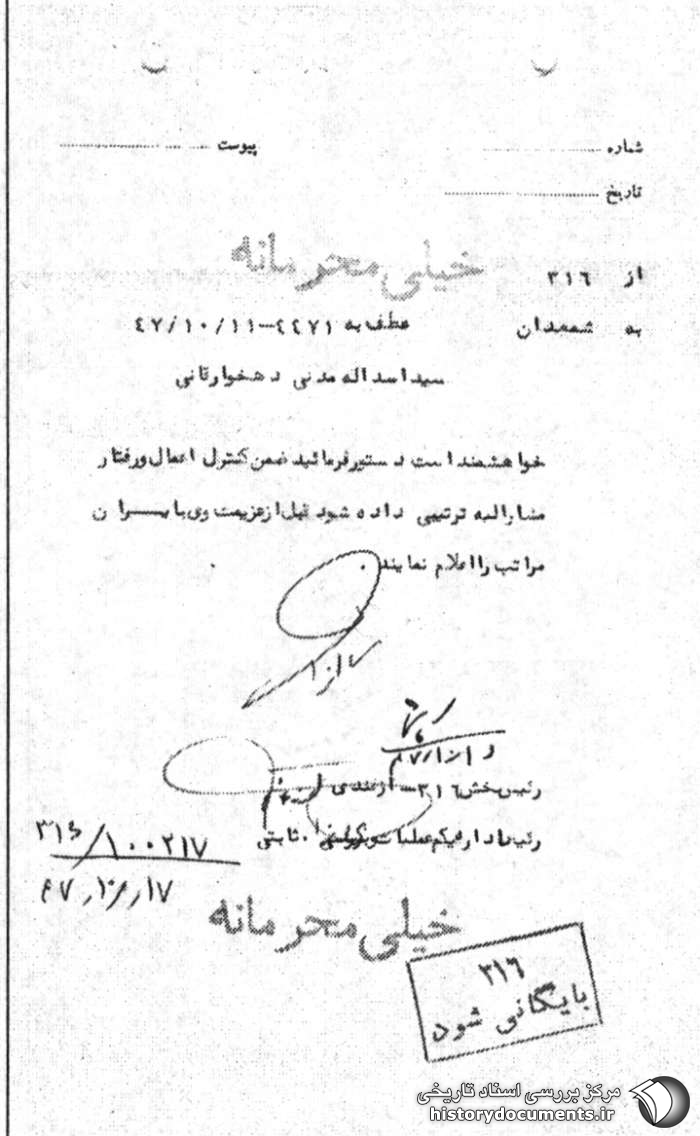 شماره ........ پیوست ........
تاریخ ........
خیلی محرمانه
از ۳۱۶
به همدان عطف به ۴۴۷۱-۴۷/۱۰/۱۱
سیداسداله مدنی دهخوارقانی
خواهشمند است دستور فرمائید ضمن کنترل اعمال و رفتار
مشارالیه ترتیبی داده شود قبل از عزیمت وی بایـــران
مراتب را اعلام نمایند.
رئیس بخش ۳۱۶- ازغندی
رئیس اداره یکم عملیات و بررسی. ثابتی
۳۱۶/۱۰۰۲۱۷
۴۷/۱۰/۱۷
خیلی محرمانه
۳۱۶
بایگانی شود
مرکز بررسی اسناد تاریخی
historydocuments.ir